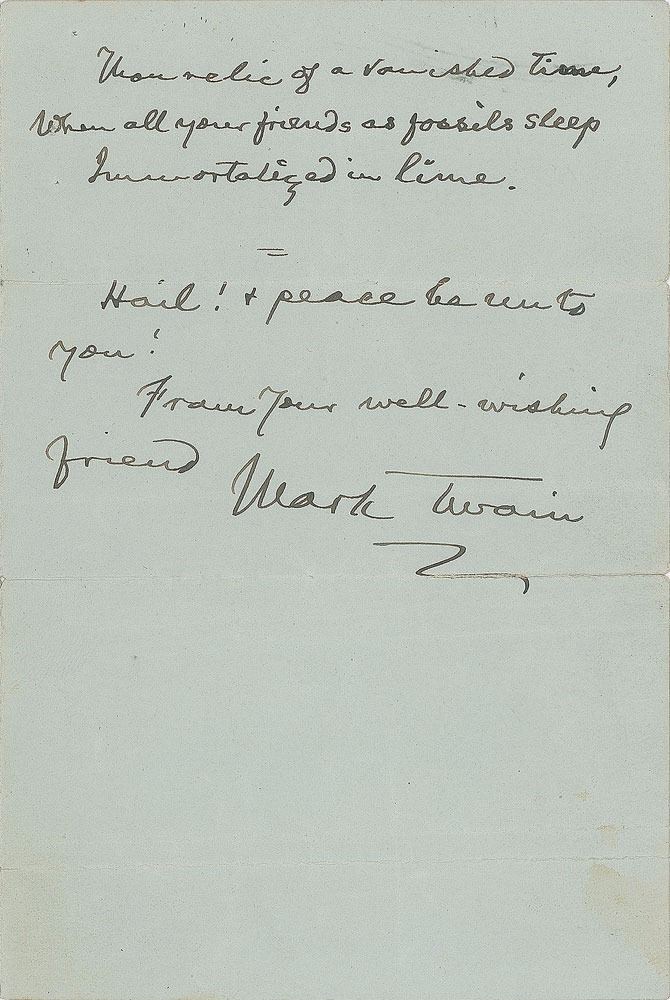 Thou relic of a vanished time,
When all your friends as fossils sleep
Immortalized in lime.
=
Hail! & peace be unto
you!
From Your well-wishing
friend
Mark Twain